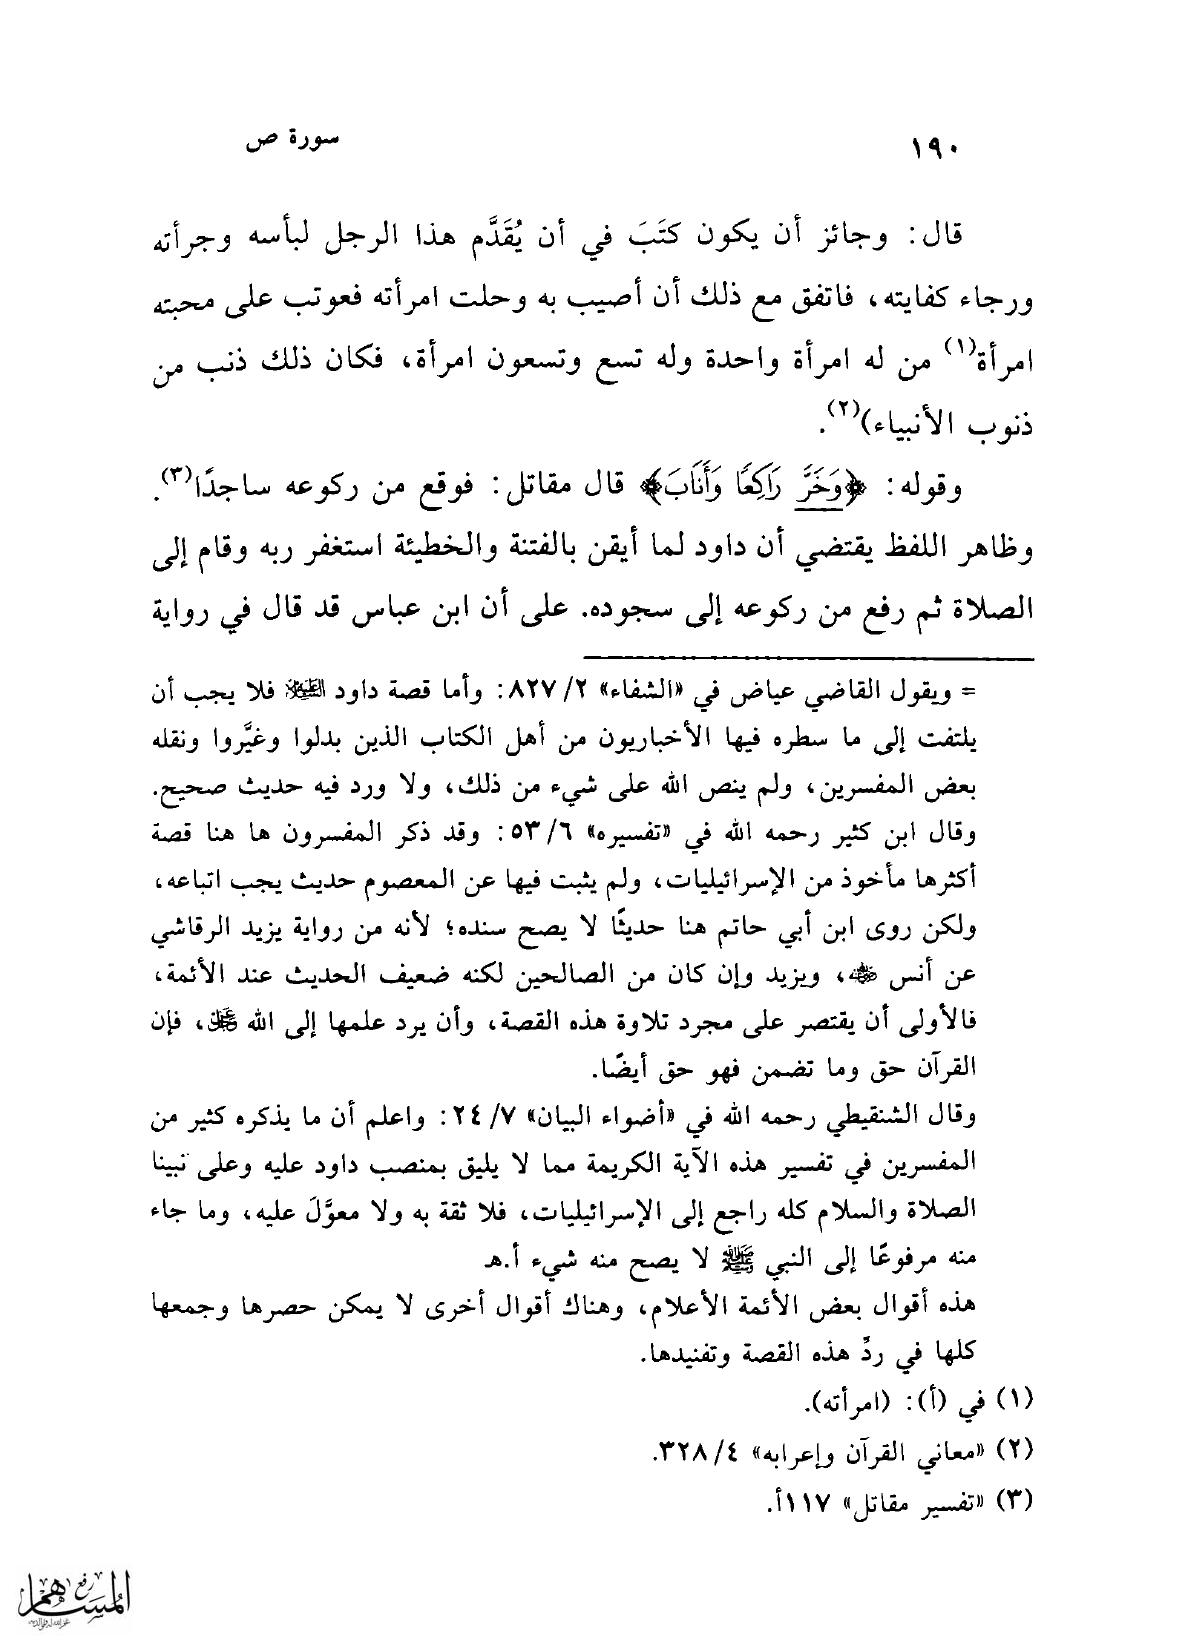 ١٩٠ سورة ص
قال: وجائز أن يكون كتَبَ في أن يُقَدَّم هذا الرجل لبأسه وجرأته
ورجاء كفايته، فاتفق مع ذلك أن أصيب به وحلت امرأته فعوتب على محبته
امرأة(١) من له امرأة واحدة وله تسع وتسعون امرأة، فكان ذلك ذنب من
ذنوب الأنبياء)(٢).
وقوله: ﴿وَخَرَّ رَاكِعًا وَأَنَابَ﴾ قال مقاتل: فوقع من ركوعه ساجدًا(٣).
وظاهر اللفظ يقتضي أن داود لما أيقن بالفتنة والخطيئة استغفر ربه وقام إلى
الصلاة ثم رفع من ركوعه إلى سجوده. على أن ابن عباس قد قال في رواية
= ويقول القاضي عياض في «الشفاء» ٢/ ٨٢٧: وأما قصة داود عليه السلام فلا يجب أن
يلتفت إلى ما سطره فيها الأخباريون من أهل الكتاب الذين بدلوا وغيَّروا ونقله
بعض المفسرين، ولم ينص الله على شيء من ذلك، ولا ورد فيه حديث صحيح.
وقال ابن كثير رحمه الله في «تفسيره» ٦/ ٥٣: وقد ذكر المفسرون ها هنا قصة
أكثرها مأخوذ من الإسرائيليات، ولم يثبت فيها عن المعصوم حديث يجب اتباعه،
ولكن روى ابن أبي حاتم هنا حديثًا لا يصح سنده؛ لأنه من رواية يزيد الرقاشي
عن أنس رضي الله عنه، ويزيد وإن كان من الصالحين لكنه ضعيف الحديث عند الأئمة،
فالأولى أن يقتصر على مجرد تلاوة هذه القصة، وأن يرد علمها إلى الله عز وجل، فإن
القرآن حق وما تضمن فهو حق أيضًا.
وقال الشنقيطي رحمه الله في «أضواء البيان» ٧/ ٢٤: واعلم أن ما يذكره كثير من
المفسرين في تفسير هذه الآية الكريمة مما لا يليق بمنصب داود عليه وعلى نبينا
الصلاة والسلام كله راجع إلى الإسرائيليات، فلا ثقة به ولا معوَّلَ عليه، وما جاء
منه مرفوعًا إلى النبي ﷺ لا يصح منه شيء أ.هـ
هذه أقوال بعض الأئمة الأعلام، وهناك أقوال أخرى لا يمكن حصرها وجمعها
كلها في ردِّ هذه القصة وتفنيدها.
(١) في (أ): (امرأته).
(٢) «معاني القرآن وإعرابه» ٤/ ٣٢٨.
(٣) «تفسير مقاتل» ١١٧أ.
رفع
المساهم